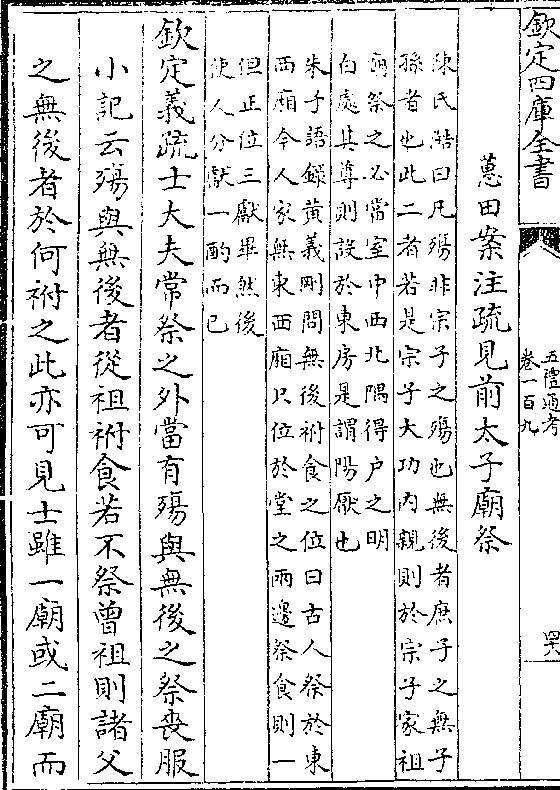 欽定四庫全書
五禮通考
卷一百九
四六
蕙田案注疏見前太子廟祭
陳氏澔曰凡殤非宗子之殤也無後者庶子之無子
孫者也此二者若是宗子大功內親則於宗子家祖
廟祭之必當室中西北隅得户之明
白處其尊則設於東房是謂陽厭也
朱子語録黃義剛問無後祔食之位曰古人祭於東
西廂今人家無東西廂只位於堂之兩邊祭食則一
但正位三獻畢然後
使人分獻一酌而已
欽定義疏士大夫常祭之外當有殤與無後之祭喪服
小記云殤與無後者從祖祔食若不祭曾祖則諸父
之無後者於何祔之此亦可見士雖一廟或二廟而